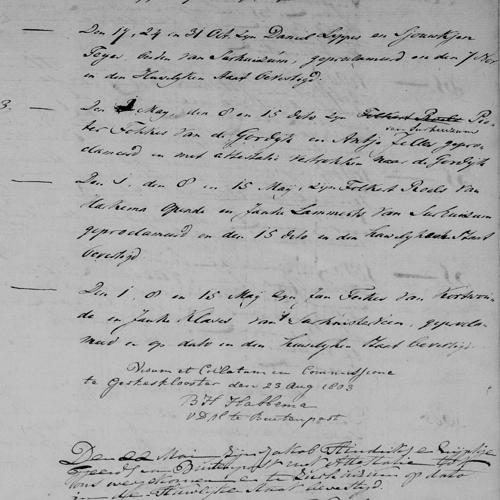 Den 17, 24 en 31 Oct. zyn Daniel Lippes en Sjoukjen
beiden van Surhuizum, geproclameerd en den 7 Nov
in den Huwlijken Staat bevestigd.
3. Den 1 May, den 8 en 15 dito zyn Folkert Roels Pie-
van Surhuizum
ter Fokkes van de Gerdyk en Antje Jelles gepro-
clameerd en met attestatie vertrokken naar de Gerdyk
Den 1, den 8 en 15 May, zyn Folkert Roels van
Harkema Opende en Janke Lammerts van Surhuizum
geproclameerd en den 15 dito in den huwlyken Staat
bevestigd
Den 1, 8 en 15 May zyn Jan Feikes van Kortwou-
de en Janke Klases van 't Surhuisterveen, geprocla-
meerd en op dato in den huwelijken Staat bevestigd.
Visum et Collatum in Commissione
te Gerkesklooster den 23 Aug 1803
B H Habbema
V.D.M. te Buitenpost
Den 22 Mai zijn Jakob Hindriks en
van Buitenpost met Attestatie tot
ons overgekomen en te Surhuizum op dato
in den Huwlijke Staat bevestigd.